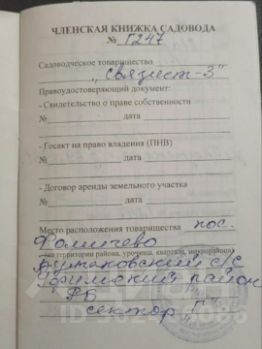 ЧЛЕНСКАЯ КНИЖКА САДОВОДА
№ Г247
Садоводческое товарищество
"Связист-3"
Правоудостоверяющий документ:
- Свидетельство о праве собственности
№ дата
- Госакт на право владения (ПНВ)
№ дата
- Договор аренды земельного участка
№ дата
Место расположения товарищества пос.
Фомичево
(на территории района, урочища, квартал, микрорайон)
Булгаковский с/с
Уфимский район
РБ
сектор "Г"